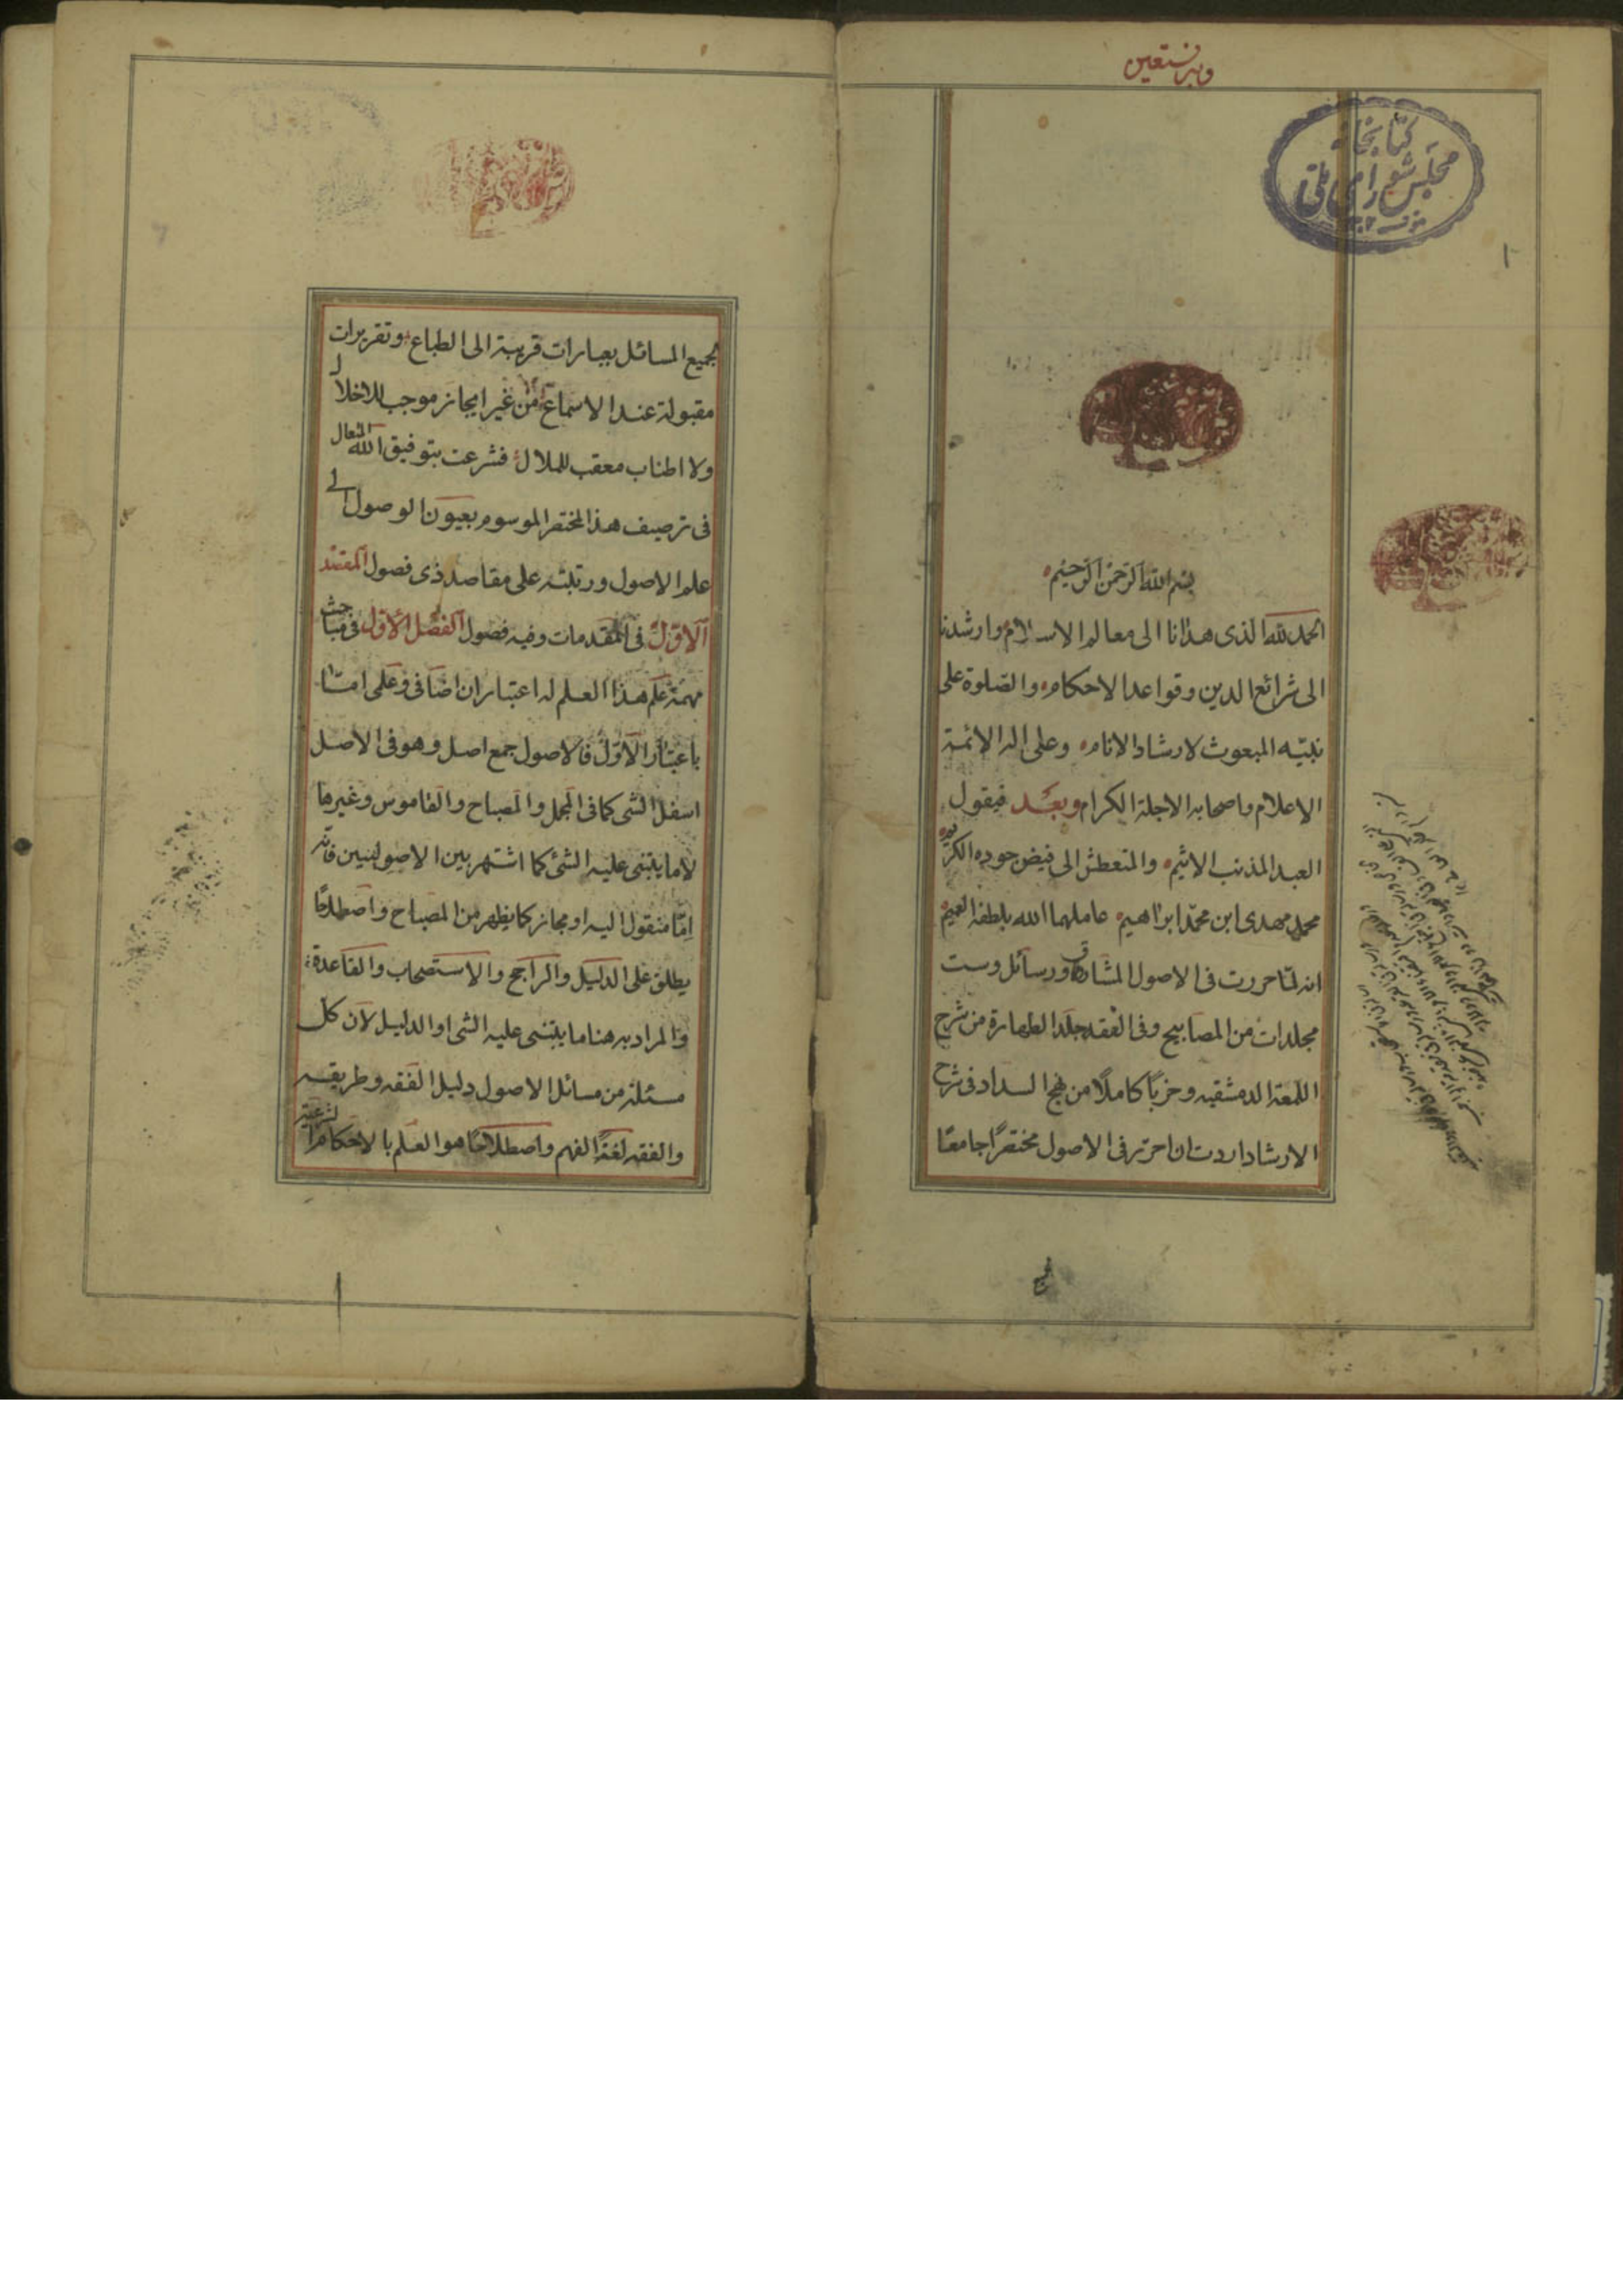 وبه نستعين
كتابخانه
مجلس شورای ملی
١
بسم الله الرحمن الرحيم
الحمد لله الذى هدانا الى معالم الاسلام وارشدنا
الى شرائع الدين وقواعد الاحكام والصلوة على
نبيّه المبعوث لارشاد الانام وعلى اله الائمة
الاعلام واصحابه الاجلة الكرام وبعد فيقول
العبد المذنب الاثيم والمتعطش الى فيض جوده الكريم
محمد مهدى ابن محمد ابراهيم عاملهما الله بلطفه العميم
انه لمّا حررت فى الاصول المشارق ورسائل وست
مجلدات من المصابيح وفى الفقه جلد الطهارة من شرح
اللمعة الدمشقيه وخربًا كاملًا من نهج السداد فى شرح
الارشاد اردت ان احرّر فى الاصول مختصرًا جامعًا
لجميع المسائل بعبارات قريبة الى الطباع وتقريرات
مقبولة عند الاسماع من غير ايجاز موجب للاخلال
ولا اطناب معقب للملال فشرعت بتوفيق الله المتعال
فى ترصيف هذا المختصر الموسوم بعيون الوصول الى
علم الاصول ورتبته على مقاصد ذى فصول المقصد
الاوّل فى المقدمات وفيه فصول الفصل الاوّل فى مباحث
مهمّة علم هذا العلم له اعتباران اضافى وعلمى امّا
باعتبار الاوّل فالاصول جمع اصل وهو فى الاصل
اسفل الشى كما فى المجمل والمصباح والقاموس وغيرها
لا ما يبتنى عليه الشئ كما اشتهر بين الاصوليين فانّه
امّا منقول اليه او مجاز كما يظهر من المصباح واصطلاحًا
يطلق على الدليل والراجح والاستصحاب والقاعدة
والمراد به هنا ما يبتنى عليه الشى او الدليل لان كل
مسئلة من مسائل الاصول دليل الفقه وطريقه
والفقه لغةً الفهم واصطلاحًا هو العلم بالاحكام الشرعيّة